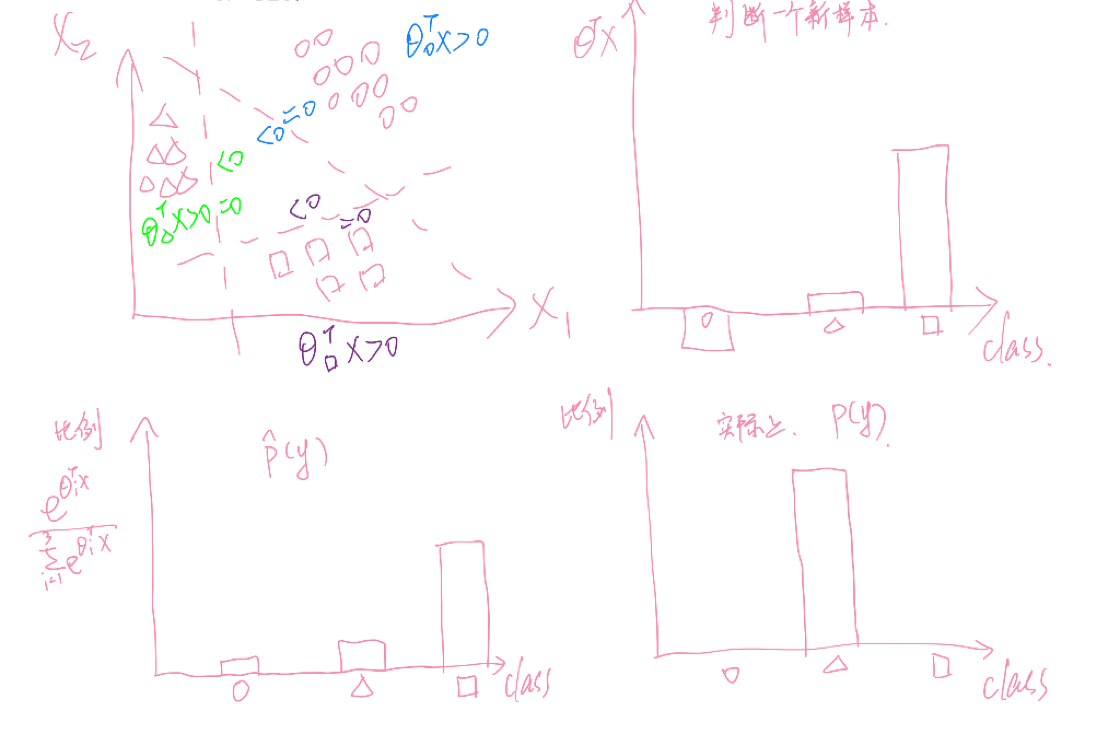 X₂
θ○ᵀX>0
=0
<0
<0
θ△ᵀX>0 =0
<0
=0
θ□ᵀX>0
X₁
θᵀX
判断一个新样本.
○ △ □
class.
比例
p̂(y)
e^{θᵢᵀX}
∑_{i=1}^{3} e^{θᵢᵀX}
○ △ □
class
比例
实际上. p(y).
○ △ □
class